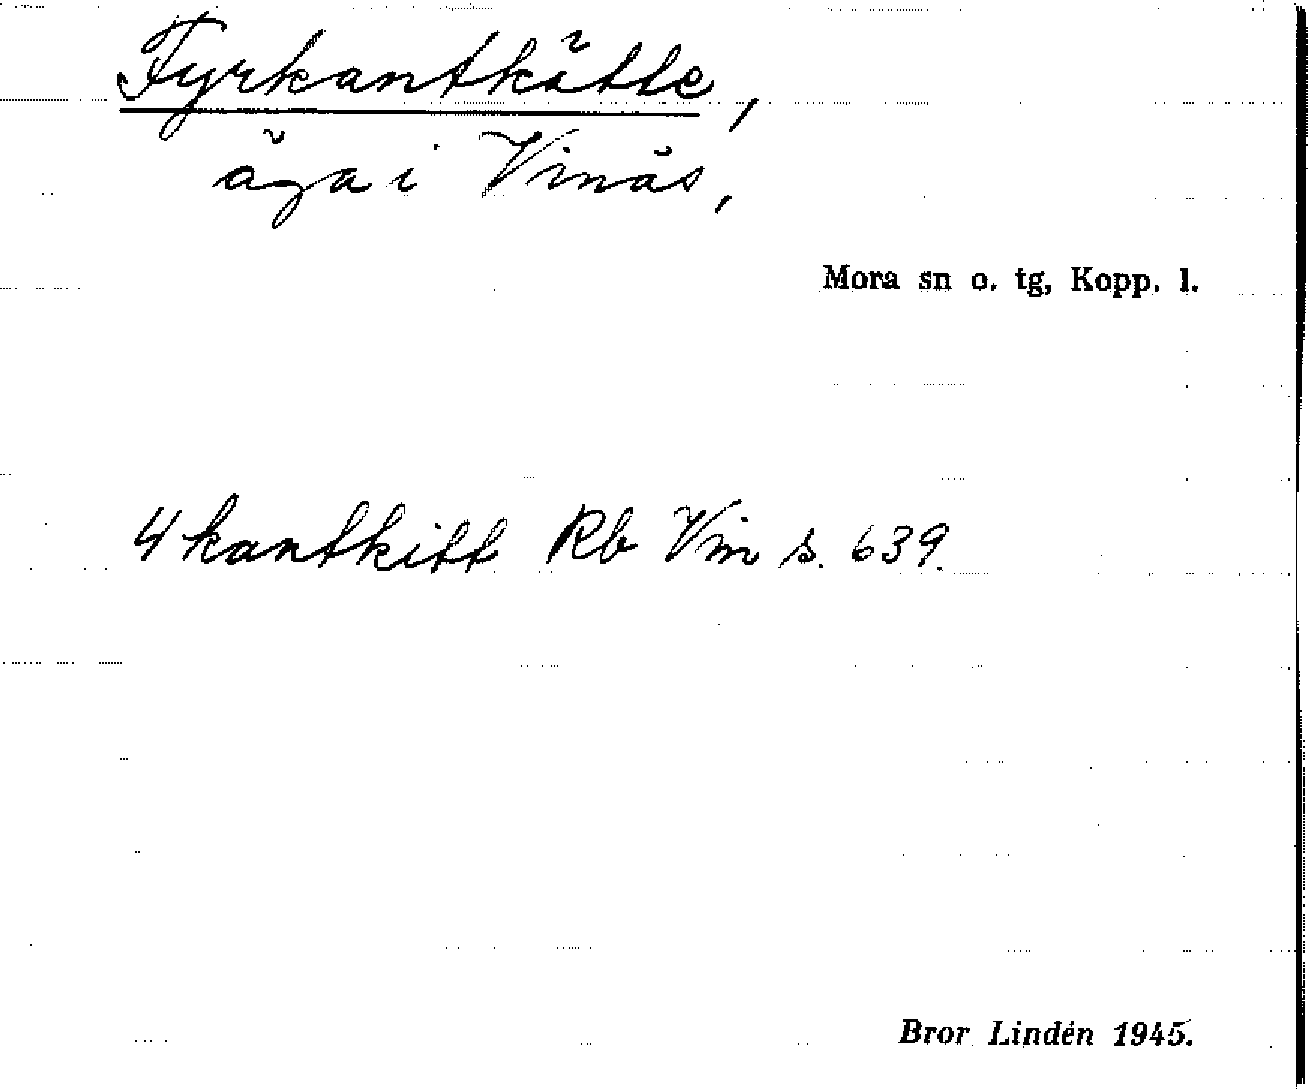 Fyrkantkätte,
äga i Vinäs,
Mora sn o. tg, Kopp. l.
4 kantkitt Rb Vim s. 639.
Bror Lindén 1945.